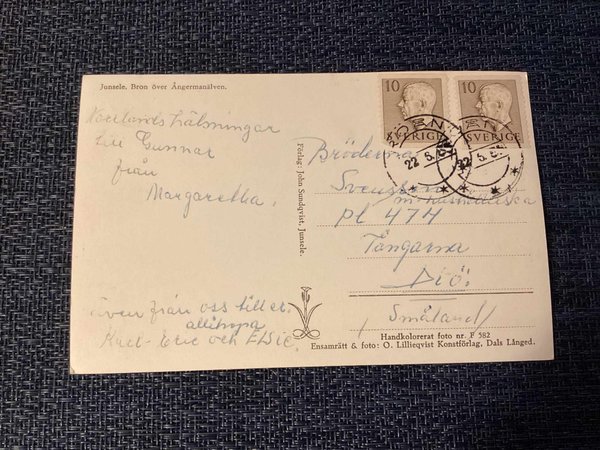 Junsele. Bron över Ångermanälven.
10
10
SVERIGE
SVERIGE
22 5
22 5
Norrlands hälsningar
till Gunnar
från
Margaretha.
Även från oss till er
allihopa
Karl-Eric och Elsie.
Förlag: John Sundqvist, Junsele.
Bröderna
Svensson
m. hushållerska
pl 474
Tångarna
Diö.
(Småland)
Handkolorerat foto nr. F 582
Ensamrätt & foto: O. Lillieqvist Konstförlag, Dals Långed.